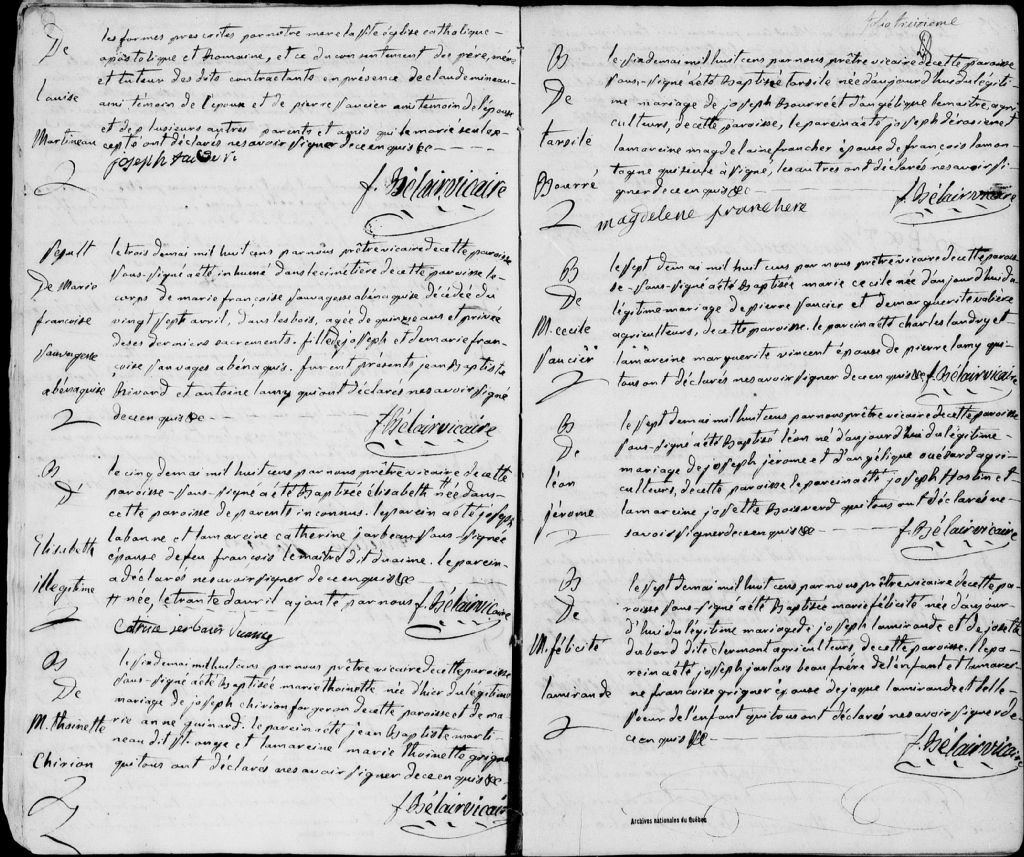 De
Louise
Martineau
les formes prescrites par nôtre mere la ste église catholique-
apostolique et Romaine, et ce du consentement des père, mère
et tuteur des dits contractants en présence de claude mineau-
ami témoin de l'époux et de pierre saucier ami témoin de l'épouse
et de plusieurs autres parents et amis qui le marié seul ex-
cepté ont déclarés ne savoir signer de ce enquis &c
joseph
f. Bélair vicaire
Sepult
De Marie
francoise
sauvagesse
abénaquise
le trois de mai mil huit cens par nous prêtre vicaire de cette paroisse
sous-signé a été inhumé dans le cimétière de cette paroisse le
corps de marie francoise sauvagesse abénaquise décédée du
vingt sept avril, dans les bois, agée de quinze ans et privée
de ses derniers sacrements. fille de joseph et de marie fran-
çoise sauvages abénaquis. furent présents jean Baptiste
Rivard et antoine lamy qui ont déclarés ne savoir signé
de ce enquis &c
f. Bélair vicaire
B
D'
Elisabeth
illegitime
le cinq de mai mil huit cens par nous prêtre vicaire de cette
paroisse sous-signé a été Baptisée élisabeth # née dans-
cette paroisse de parents inconnus. le parein a été joseph
labonne et la mareine catherine jarbeau sous-signée
épouse de feu françois lemaître dit duaime. le parein-
a déclaré ne savoir signer de ce enquis &c
# née, le trante d'avril ajouté par nous f. Bélair vicaire
B
De
M. thoinette
Chirion
le six de mai mil huit cens par nous prêtre vicaire de cette paroisse
sous-signé a été Baptisée marie thoinette née d'hier du légitime
mariage de joseph chirion forgeron de cette paroisse et de ma-
rie anne guinard. le parein a été jean Baptiste marti-
neau dit st. onge et la mareine marie thoinette
qui tous ont déclarés ne savoir signer de ce enquis &c
f. Bélair vicaire
folio treizieme
B
De
tarsile
Bourré
le six de mai mil huit cens par nous prêtre vicaire de cette paroisse
sous-signé a été Baptisée tarsile née d'aujourd'hui du légiti-
me mariage de joseph Bourré et d'angélique lemaitre, agri-
culteurs, de cette paroisse, le parein a été joseph désrosier et
la mareine magdelaine francher épouse de françois lamon-
tagne qui seule a signé, les autres ont déclarés ne savoir si-
gner de ce enquis &c
f. Bélair vicaire
magdelene franchere
B
De
M. cecile
Saucier
le sept de mai mil huit cens par nous prêtre vicaire de cette parois-
se sous-signé a été Baptisée marie cecile née d'aujourd'hui du
légitime mariage de pierre saucier et de marguerite
agriculteurs, de cette paroisse. le parein a été charles landry et-
la mareine marguerite vincent épouse de pierre lamy qui-
tous ont déclarés ne savoir signer de ce enquis &c f. Bélair vicaire
B
De
léon
jérome
le sept de mai mil huit cens par nous prêtre vicaire de cette paroisse
sous-signé a été Baptisé léon né d'aujourd'hui du légitime-
mariage de joseph jérome et d'angélique ouellard agri-
culteurs, de cette paroisse le parein a été joseph et
la mareine josette Boisverd qui tous ont déclarés ne-
savoir signer de ce enquis &c
f. Bélair vicaire
B
De
M. félicité
lamirande
le sept de mai mil huit cens par nous prêtre vicaire de cette pa-
roisse sous-signé a été Baptisée marie félicité née d'aujour-
d'hui du légitime mariage de joseph lamirande et de josette
dubord dite clermont agriculteurs, de cette paroisse. le pa-
rein a été joseph beau frère de l'enfant et la marei-
ne francoise grignon épouse de jaque lamirande et belle-
soeur de l'enfant qui tous ont déclarés ne savoir signer de-
ce enquis &c
f. Bélair vicaire
Archives nationales du Québec